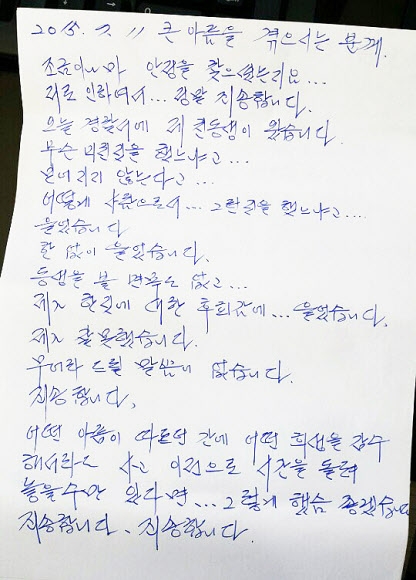 2015. 7. 11 큰 아픔을 겪으시는 분께.
조금이나마 안정을 찾으셨는지요...
저로 인하여서... 정말 죄송합니다.
오늘 경찰서에 제 친동생이 왔습니다.
무슨 미친짓을 했느냐고...
믿어지지 않는다고...
어떻게 사람으로서... 그런짓을 했느냐고....
울었습니다
한 없이 울었습니다.
동생을 볼 면목도 없고...
제가 한짓에 대한 후회감에... 울었습니다.
제가 잘못했습니다.
무어라 드릴 말씀이 없습니다.
죄송합니다.
어떤 아픔이 따르던 간에 어떤 희생을 감수
해서라도 사고 이전으로 시간을 돌려
놓을수만 있다면... 그렇게 했슴 좋겠습니다
죄송합니다. 죄송합니다.